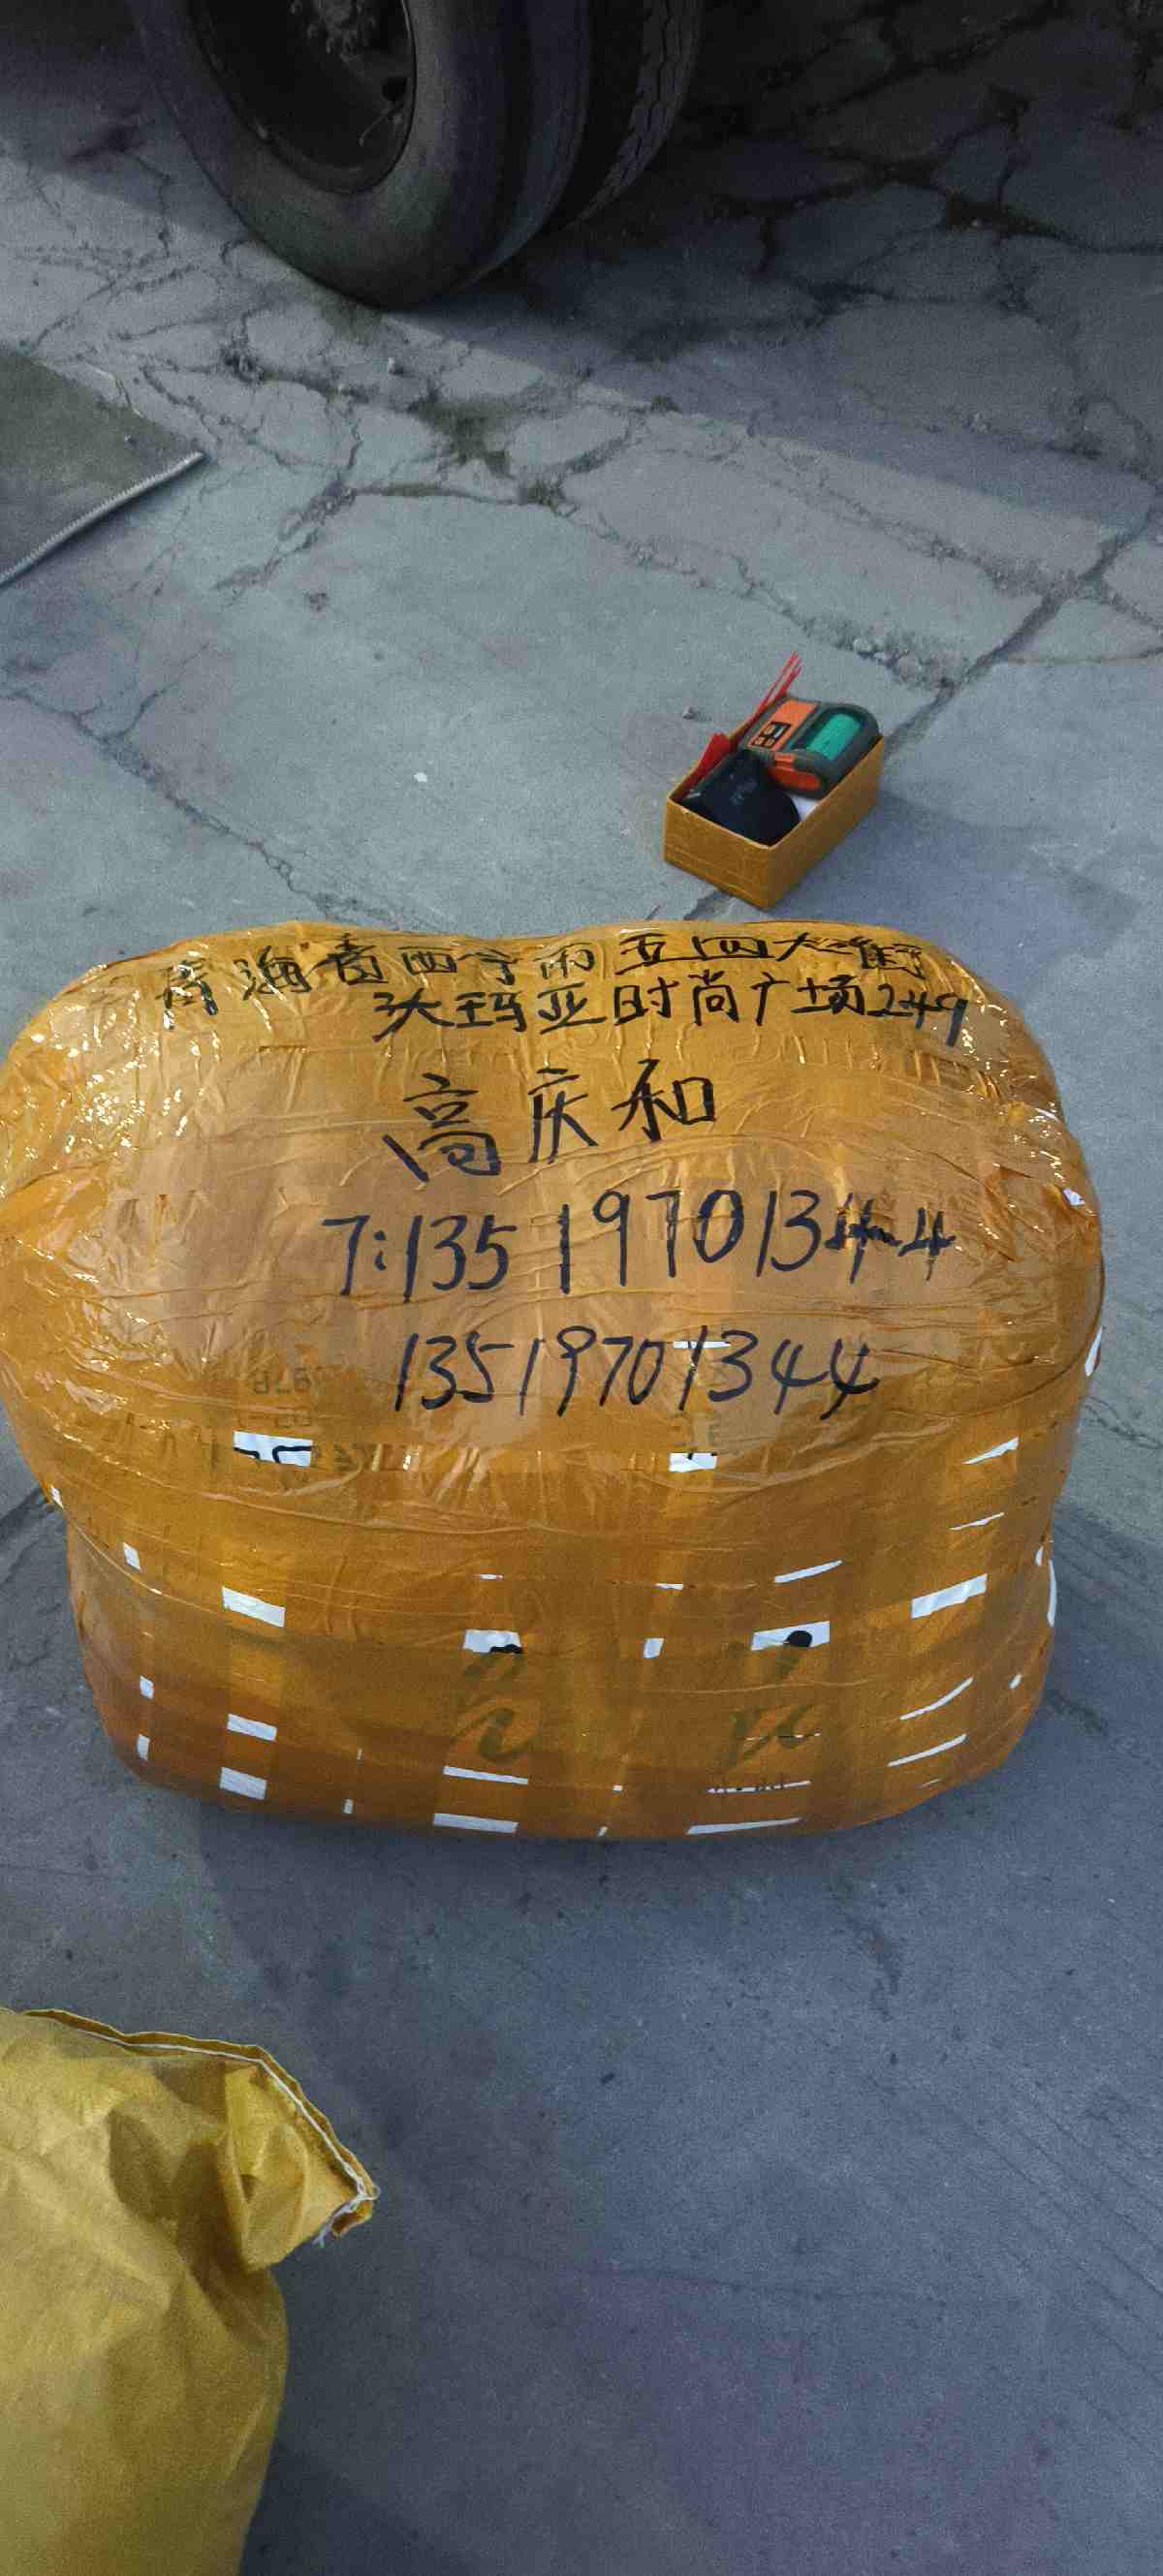 青海省西宁市五四大街
头玛亚时尚广场249
高庆和
7:13519701344
13519701344